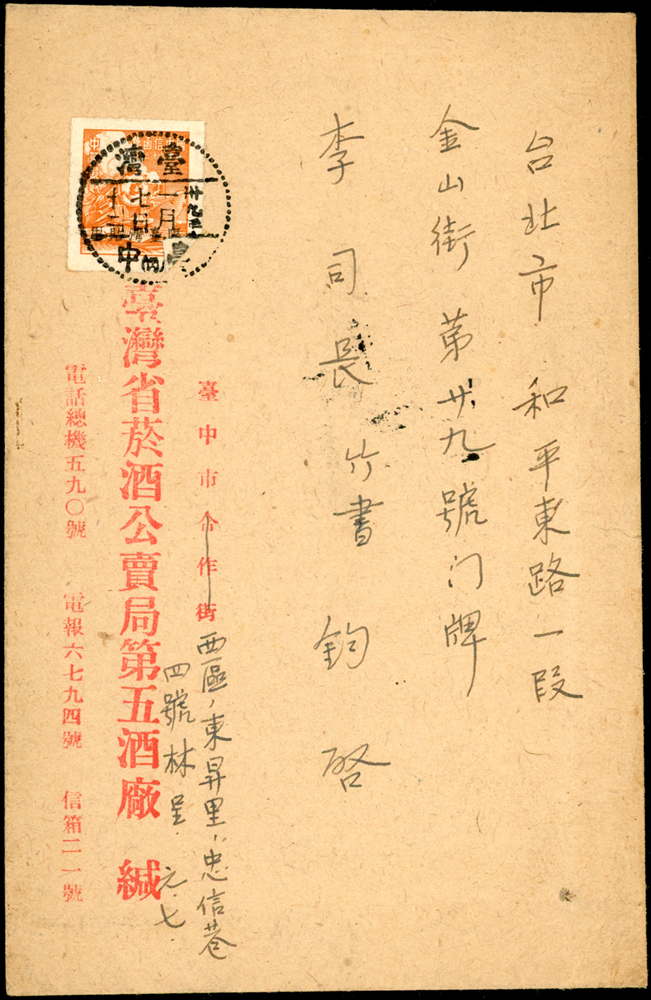 台北市 和平東路一段
金山街 第廿九號门牌
李司長竹書鈞啓
臺中市合作街
西區,東昇里,忠信巷
四號林呈.元.七.
臺灣省菸酒公賣局第五酒廠 緘
電話總機五九〇號 電報六七九四號 信箱二一號
臺灣
一月
七廿
中